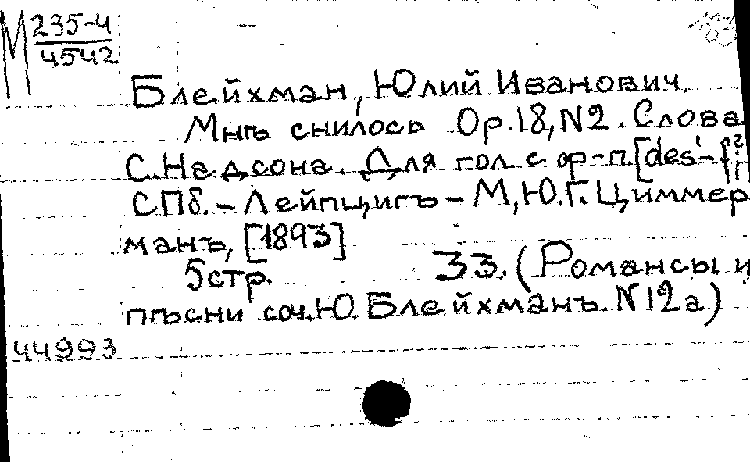 М 235-4
4542
Блейхман, Юлий Иванович.
Мнѣ снилось Op.18, N2. Слова
С. Надсона. Для гол. с ф-п. [des'-f²]
С.Пб. - Лейпцигъ - М, Ю.Г. Циммер
манъ, [1893]
5стр. 33. (Романсы и
пѣсни соч. Ю. Блейхманъ. N12а)
44993